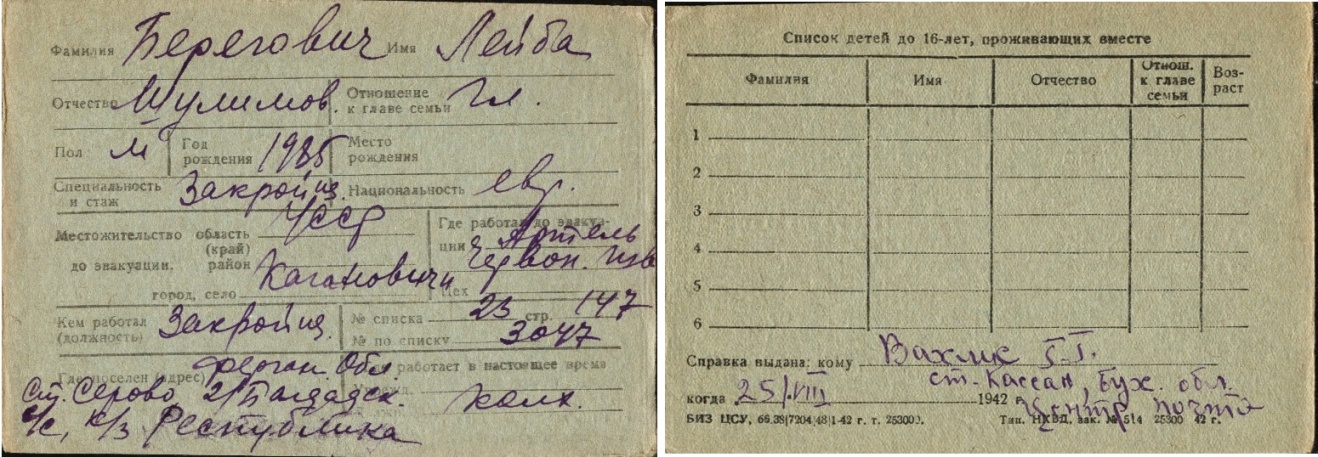 Фамилия Берегович Имя Лейба
Отчество Шулимов. Отношение к главе семьи Гл.
Пол М Год рождения Место рождения
Специальность и стаж Закройщ. Национальность евр.
Местожительство область (край) УССР
до эвакуации, район Кагановичи
город, село
Где работал до эвакуации Артель Червон.
Цех
Кем работал (должность) Закройщ. № списка 23 стр. 147
№ по списку 3047
Где поселен (адрес) Ферган. Обл.
Ст. Серово, Багдадск.
с/с, к/з Республика
работает в настоящее время
колх.
Список детей до 16-лет, проживающих вместе
Фамилия Имя Отчество Отнош. к главе семьи Воз-раст
1
2
3
4
5
6
Справка выдана: кому Вахлис
ст. Кассан, Бух. обл.
когда 25/VIII 1942 г. Центр почта
БИЗ ЦСУ, 66.38|7204|48|1-42 г. т. 25300). Тип. НКВД, зак. № 514 25300 42 г.